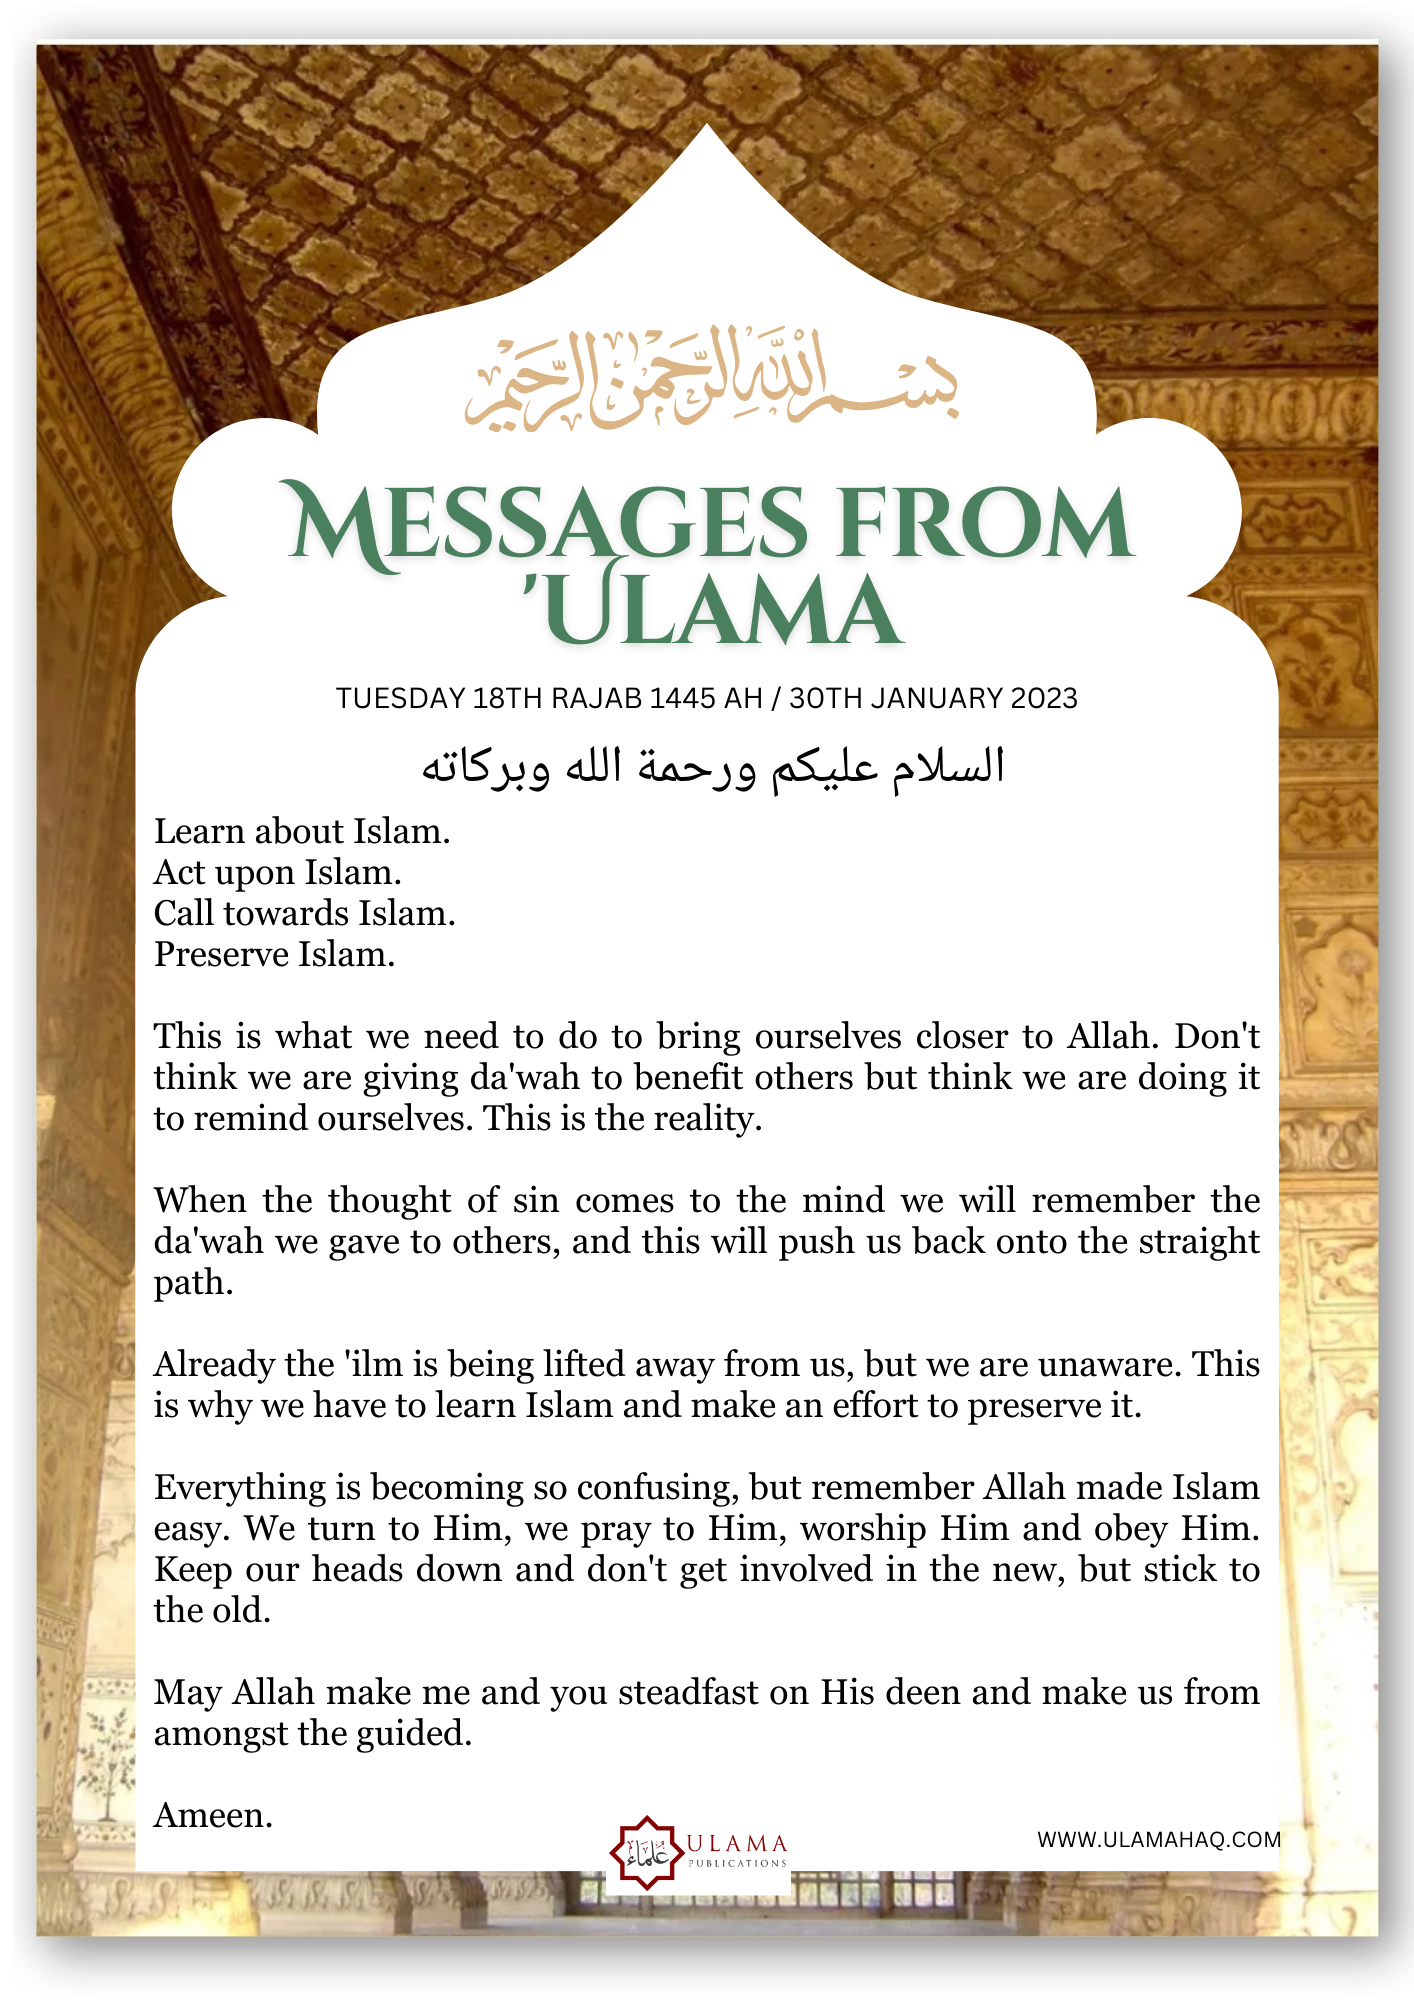 بسم الله الرحمن الرحيم
MESSAGES FROM
'ULAMA
TUESDAY 18TH RAJAB 1445 AH / 30TH JANUARY 2023
السلام عليكم ورحمة الله وبركاته
Learn about Islam.
Act upon Islam.
Call towards Islam.
Preserve Islam.
This is what we need to do to bring ourselves closer to Allah. Don't
think we are giving da'wah to benefit others but think we are doing it
to remind ourselves. This is the reality.
When the thought of sin comes to the mind we will remember the
da'wah we gave to others, and this will push us back onto the straight
path.
Already the 'ilm is being lifted away from us, but we are unaware. This
is why we have to learn Islam and make an effort to preserve it.
Everything is becoming so confusing, but remember Allah made Islam
easy. We turn to Him, we pray to Him, worship Him and obey Him.
Keep our heads down and don't get involved in the new, but stick to
the old.
May Allah make me and you steadfast on His deen and make us from
amongst the guided.
Ameen.
علماء
ULAMA
PUBLICATIONS
WWW.ULAMAHAQ.COM